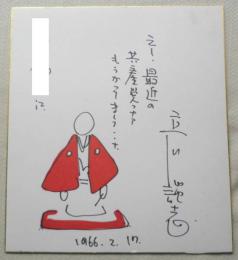 立川談志
えー・最近の
共産党ってな
もうかってまして・・・
江
1966. 2. 17.